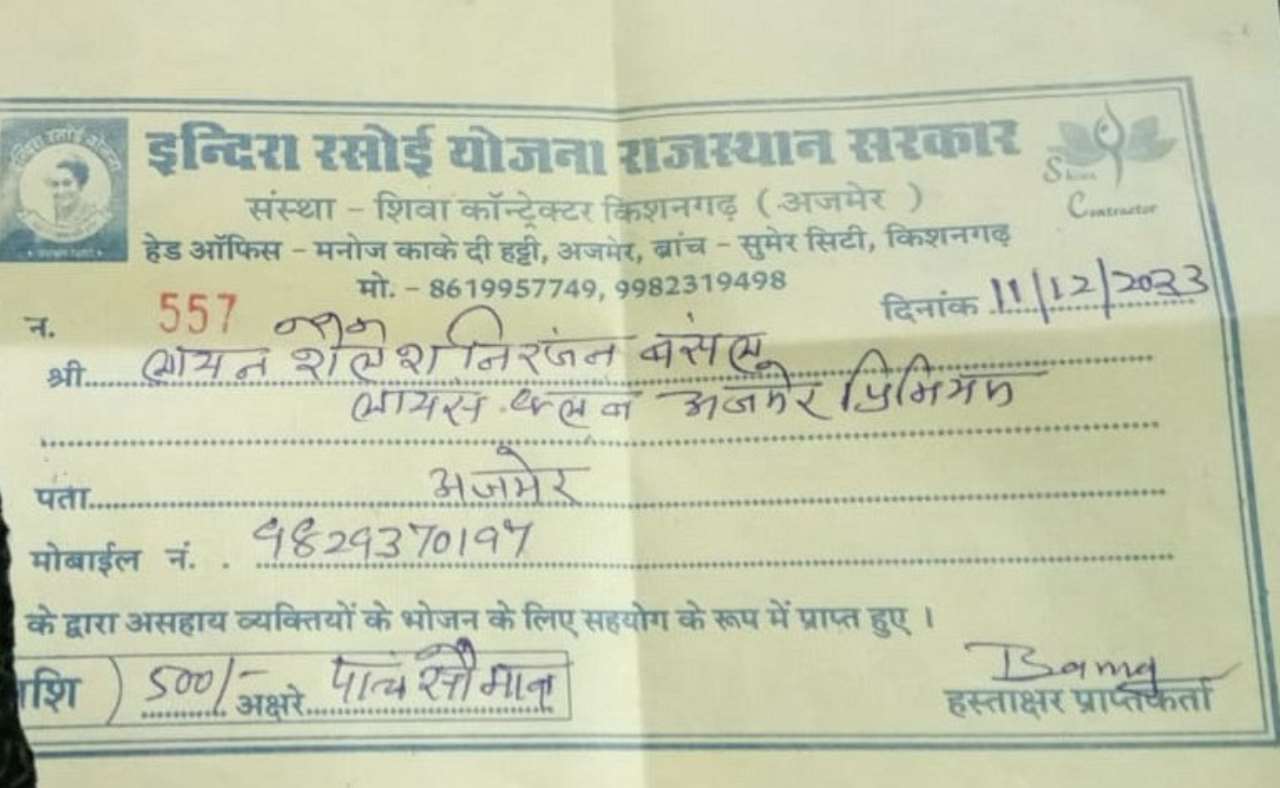 इन्दिरा रसोई योजना
इन्दिरा रसोई योजना राजस्थान सरकार
Shiva
Contractor
संस्था - शिवा कॉन्ट्रेक्टर किशनगढ़ ( अजमेर )
हेड ऑफिस - मनोज काके दी हट्टी, अजमेर, ब्रांच - सुमेर सिटी, किशनगढ़
मो. - 8619957749, 9982319498
न. 557 दिनांक 11/12/2023
श्री लायन शैलेश निरंजन बंसल
लायंस क्लब अजमेर प्रिमियम
पता अजमेर
मोबाईल नं. . 9829370197
के द्वारा असहाय व्यक्तियों के भोजन के लिए सहयोग के रूप में प्राप्त हुए ।
राशि 500/- अक्षरे पांच सौ मात्र
हस्ताक्षर प्राप्तकर्ता